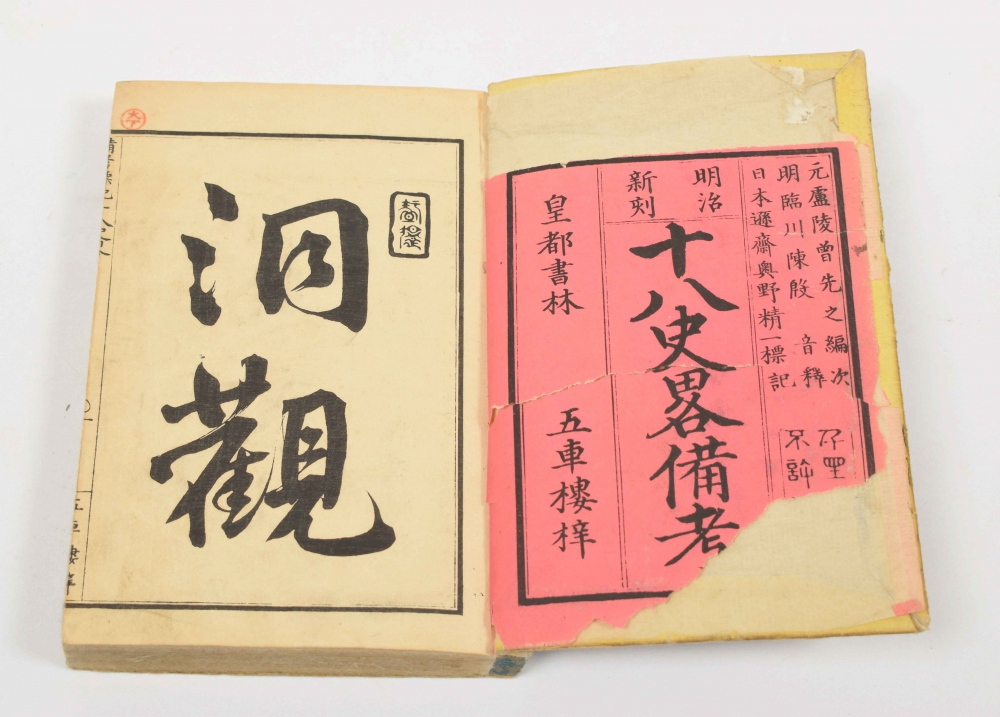 元盧陵曾先之編次
明臨川陳殷音釋
日本遜齋奥野精一標記
不許
明治
新刻
十八史畧備考
皇都書林
五車樓梓
洞觀
五車樓梓